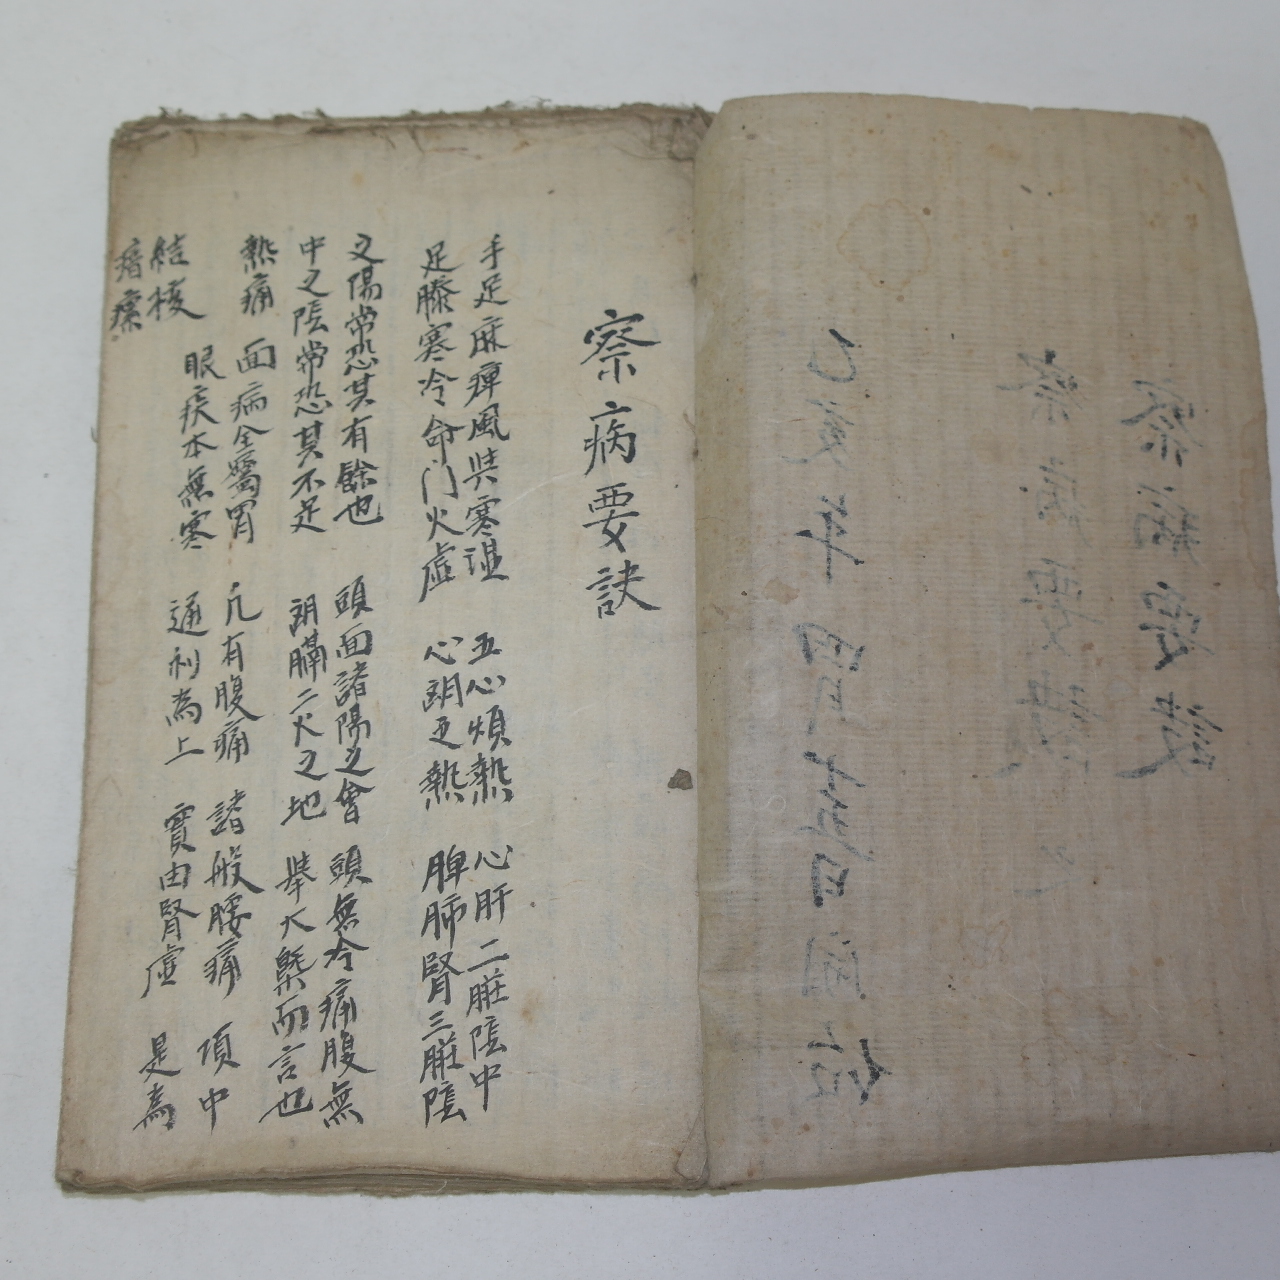 察病要訣
察病要訣
年四月十五日
察病要訣
手足麻痺風寒湿 五心煩熱 心肝二臟陰中
足膝寒冷命门火虛 心胸之熱 脾肺腎三臟陰
之陽常恐其有餘也 頭面諸陽之會 頭無冷痛腹無
中之陰常恐其不足 胸膈二火之地 舉大槩而言也
熱痛 面病全属胃 凢有腹痛 諸般腰痛 項中
眼疾本無寒 通利為上 實由腎虛 是為
結核
瘰